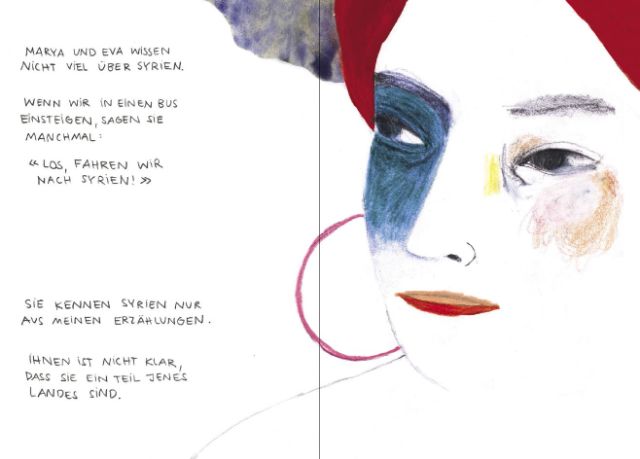 MARYA UND EVA WISSEN
NICHT VIEL ÜBER SYRIEN.
WENN WIR IN EINEN BUS
EINSTEIGEN, SAGEN SIE
MANCHMAL:
«LOS, FAHREN WIR
NACH SYRIEN!»
SIE KENNEN SYRIEN NUR
AUS MEINEN ERZÄHLUNGEN.
IHNEN IST NICHT KLAR,
DASS SIE EIN TEIL JENES
LANDES SIND.